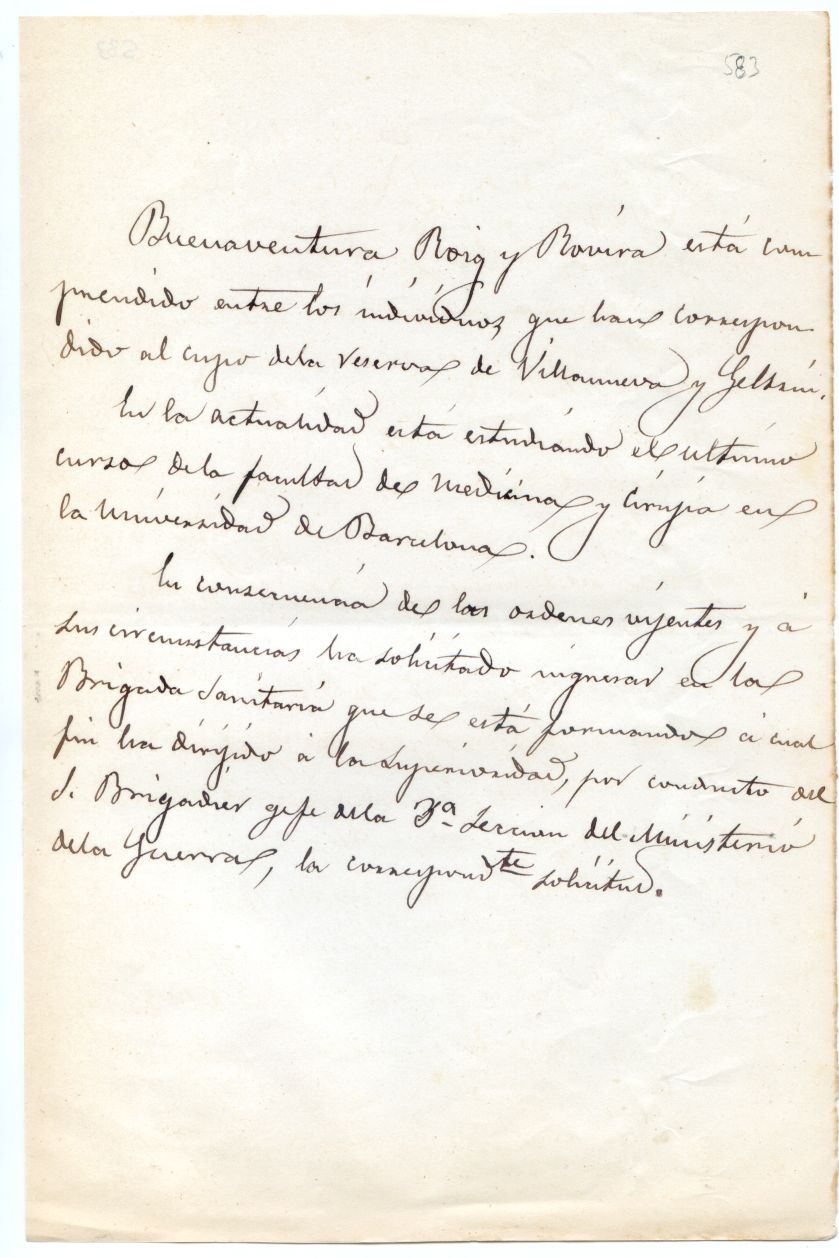 583
Buenaventura Roig y Rovira está com
prendido entre los individuos que han correspon
dido al cupo de la reserva de Villanueva y Geltrú.
En la actualidad está estudiando el ultimo
curso de la facultad de medicina y cirujia en
la Universidad de Barcelona.
En consecuencia de las ordenes vijentes y á
sus circumstancias ha solicitado ingresar en la
Brigada Sanitaria que se está formando á cual
fin ha dirijido á la Superioridad, por conducto del
S. Brigadier gefe de la 3ª Seccion del Ministerio
de la Guerra, la correspondte solicitud.